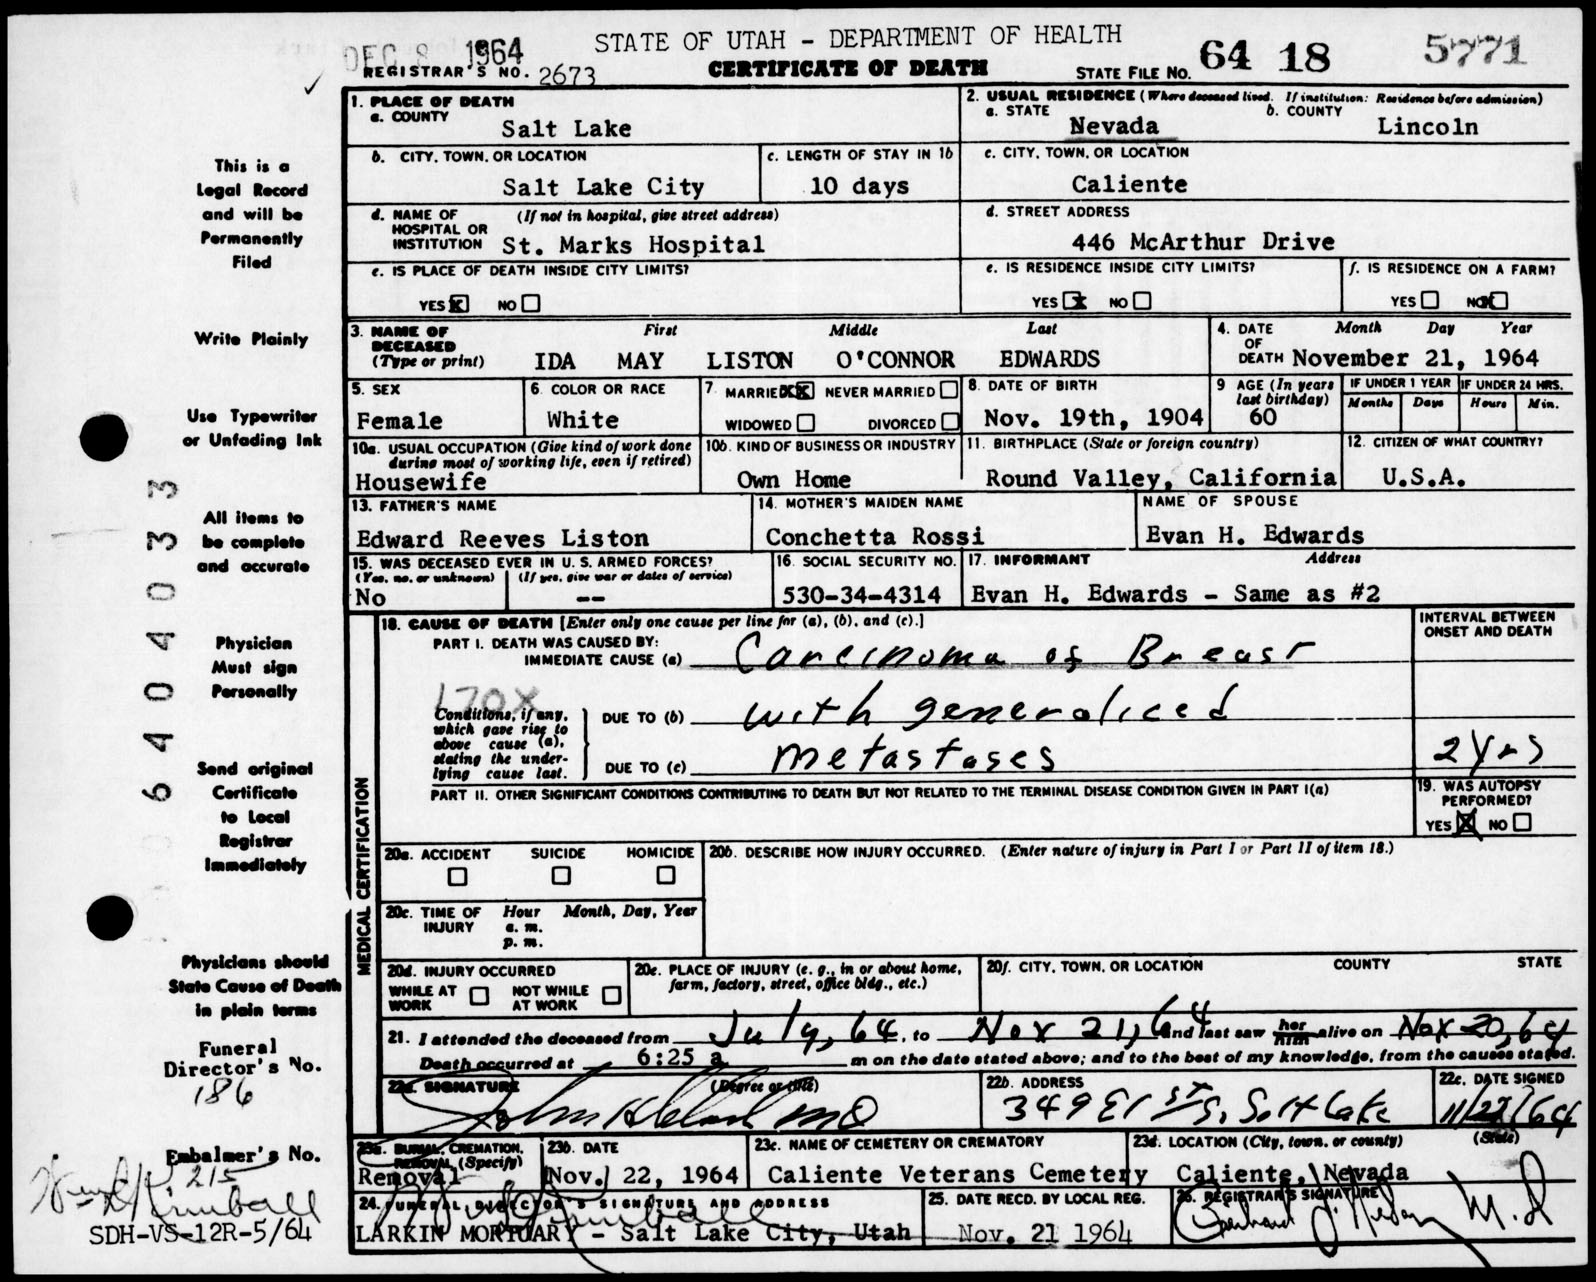 DEC 8 1964
STATE OF UTAH - DEPARTMENT OF HEALTH
CERTIFICATE OF DEATH
REGISTRAR'S NO. 2673
STATE FILE NO. 64 18 5771
This is a
Legal Record
and will be
Permanently
Filed
Write Plainly
Use Typewriter
or Unfading Ink
All items to
be complete
and accurate
Physician
Must sign
Personally
Send original
Certificate
to Local
Registrar
Immediately
Physicians should
State Cause of Death
in plain terms
Funeral
Director's No.
186
Embalmer's No.
215
Kimball
SDH-VS-12R-5/64
6404033
1. PLACE OF DEATH
a. COUNTY
Salt Lake
2. USUAL RESIDENCE (Where deceased lived. If institution: Residence before admission)
a. STATE Nevada b. COUNTY Lincoln
b. CITY, TOWN, OR LOCATION
Salt Lake City
c. LENGTH OF STAY IN 1b
10 days
c. CITY, TOWN, OR LOCATION
Caliente
d. NAME OF (If not in hospital, give street address)
HOSPITAL OR
INSTITUTION St. Marks Hospital
d. STREET ADDRESS
446 McArthur Drive
e. IS PLACE OF DEATH INSIDE CITY LIMITS?
YES X NO
e. IS RESIDENCE INSIDE CITY LIMITS?
YES X NO
f. IS RESIDENCE ON A FARM?
YES NO X
3. NAME OF First Middle Last
DECEASED
(Type or print) IDA MAY LISTON O'CONNOR EDWARDS
4. DATE Month Day Year
OF
DEATH November 21, 1964
5. SEX
Female
6. COLOR OR RACE
White
7. MARRIED XX NEVER MARRIED
WIDOWED DIVORCED
8. DATE OF BIRTH
Nov. 19th, 1904
9 AGE (In years
last birthday)
60
IF UNDER 1 YEAR
Months Days
IF UNDER 24 HRS.
Hours Min.
10a. USUAL OCCUPATION (Give kind of work done
during most of working life, even if retired)
Housewife
10b. KIND OF BUSINESS OR INDUSTRY
Own Home
11. BIRTHPLACE (State or foreign country)
Round Valley, California
12. CITIZEN OF WHAT COUNTRY?
U.S.A.
13. FATHER'S NAME
Edward Reeves Liston
14. MOTHER'S MAIDEN NAME
Conchetta Rossi
NAME OF SPOUSE
Evan H. Edwards
15. WAS DECEASED EVER IN U. S. ARMED FORCES?
(Yes, no, or unknown) (If yes, give war or dates of service)
No --
16. SOCIAL SECURITY NO.
530-34-4314
17. INFORMANT Address
Evan H. Edwards - Same as #2
MEDICAL CERTIFICATION
18. CAUSE OF DEATH [Enter only one cause per line for (a), (b), and (c).]
INTERVAL BETWEEN
ONSET AND DEATH
PART I. DEATH WAS CAUSED BY:
IMMEDIATE CAUSE (a) Carcinoma of Breast
170X
Conditions, if any,
which gave rise to
above cause (a),
stating the under-
lying cause last.
DUE TO (b) with generaliced
DUE TO (c) metastases
2 yrs
PART II. OTHER SIGNIFICANT CONDITIONS CONTRIBUTING TO DEATH BUT NOT RELATED TO THE TERMINAL DISEASE CONDITION GIVEN IN PART I(a)
19. WAS AUTOPSY
PERFORMED?
YES X NO
20a. ACCIDENT SUICIDE HOMICIDE
20b. DESCRIBE HOW INJURY OCCURRED. (Enter nature of injury in Part I or Part II of item 18.)
20c. TIME OF Hour Month, Day, Year
INJURY a. m.
p. m.
20d. INJURY OCCURRED
WHILE AT NOT WHILE
WORK AT WORK
20e. PLACE OF INJURY (e. g., in or about home,
farm, factory, street, office bldg., etc.)
20f. CITY, TOWN, OR LOCATION COUNTY STATE
21. I attended the deceased from July, 64, to Nov 21, 64 and last saw her him alive on Nov 20, 64
Death occurred at 6:25 a m on the date stated above; and to the best of my knowledge, from the causes stated.
22a. SIGNATURE (Degree or title)
John MD
22b. ADDRESS
349 E 1st S. Salt Lake
22c. DATE SIGNED
11/22/64
23a. BURIAL, CREMATION,
REMOVAL (Specify)
Removal
23b. DATE
Nov. 22, 1964
23c. NAME OF CEMETERY OR CREMATORY
Caliente Veterans Cemetery
23d. LOCATION (City, town, or county) (State)
Caliente, Nevada
24. FUNERAL DIRECTOR'S SIGNATURE AND ADDRESS
Kimball
LARKIN MORTUARY - Salt Lake City, Utah
25. DATE RECD. BY LOCAL REG.
Nov. 21 1964
26. REGISTRAR'S SIGNATURE
M.D